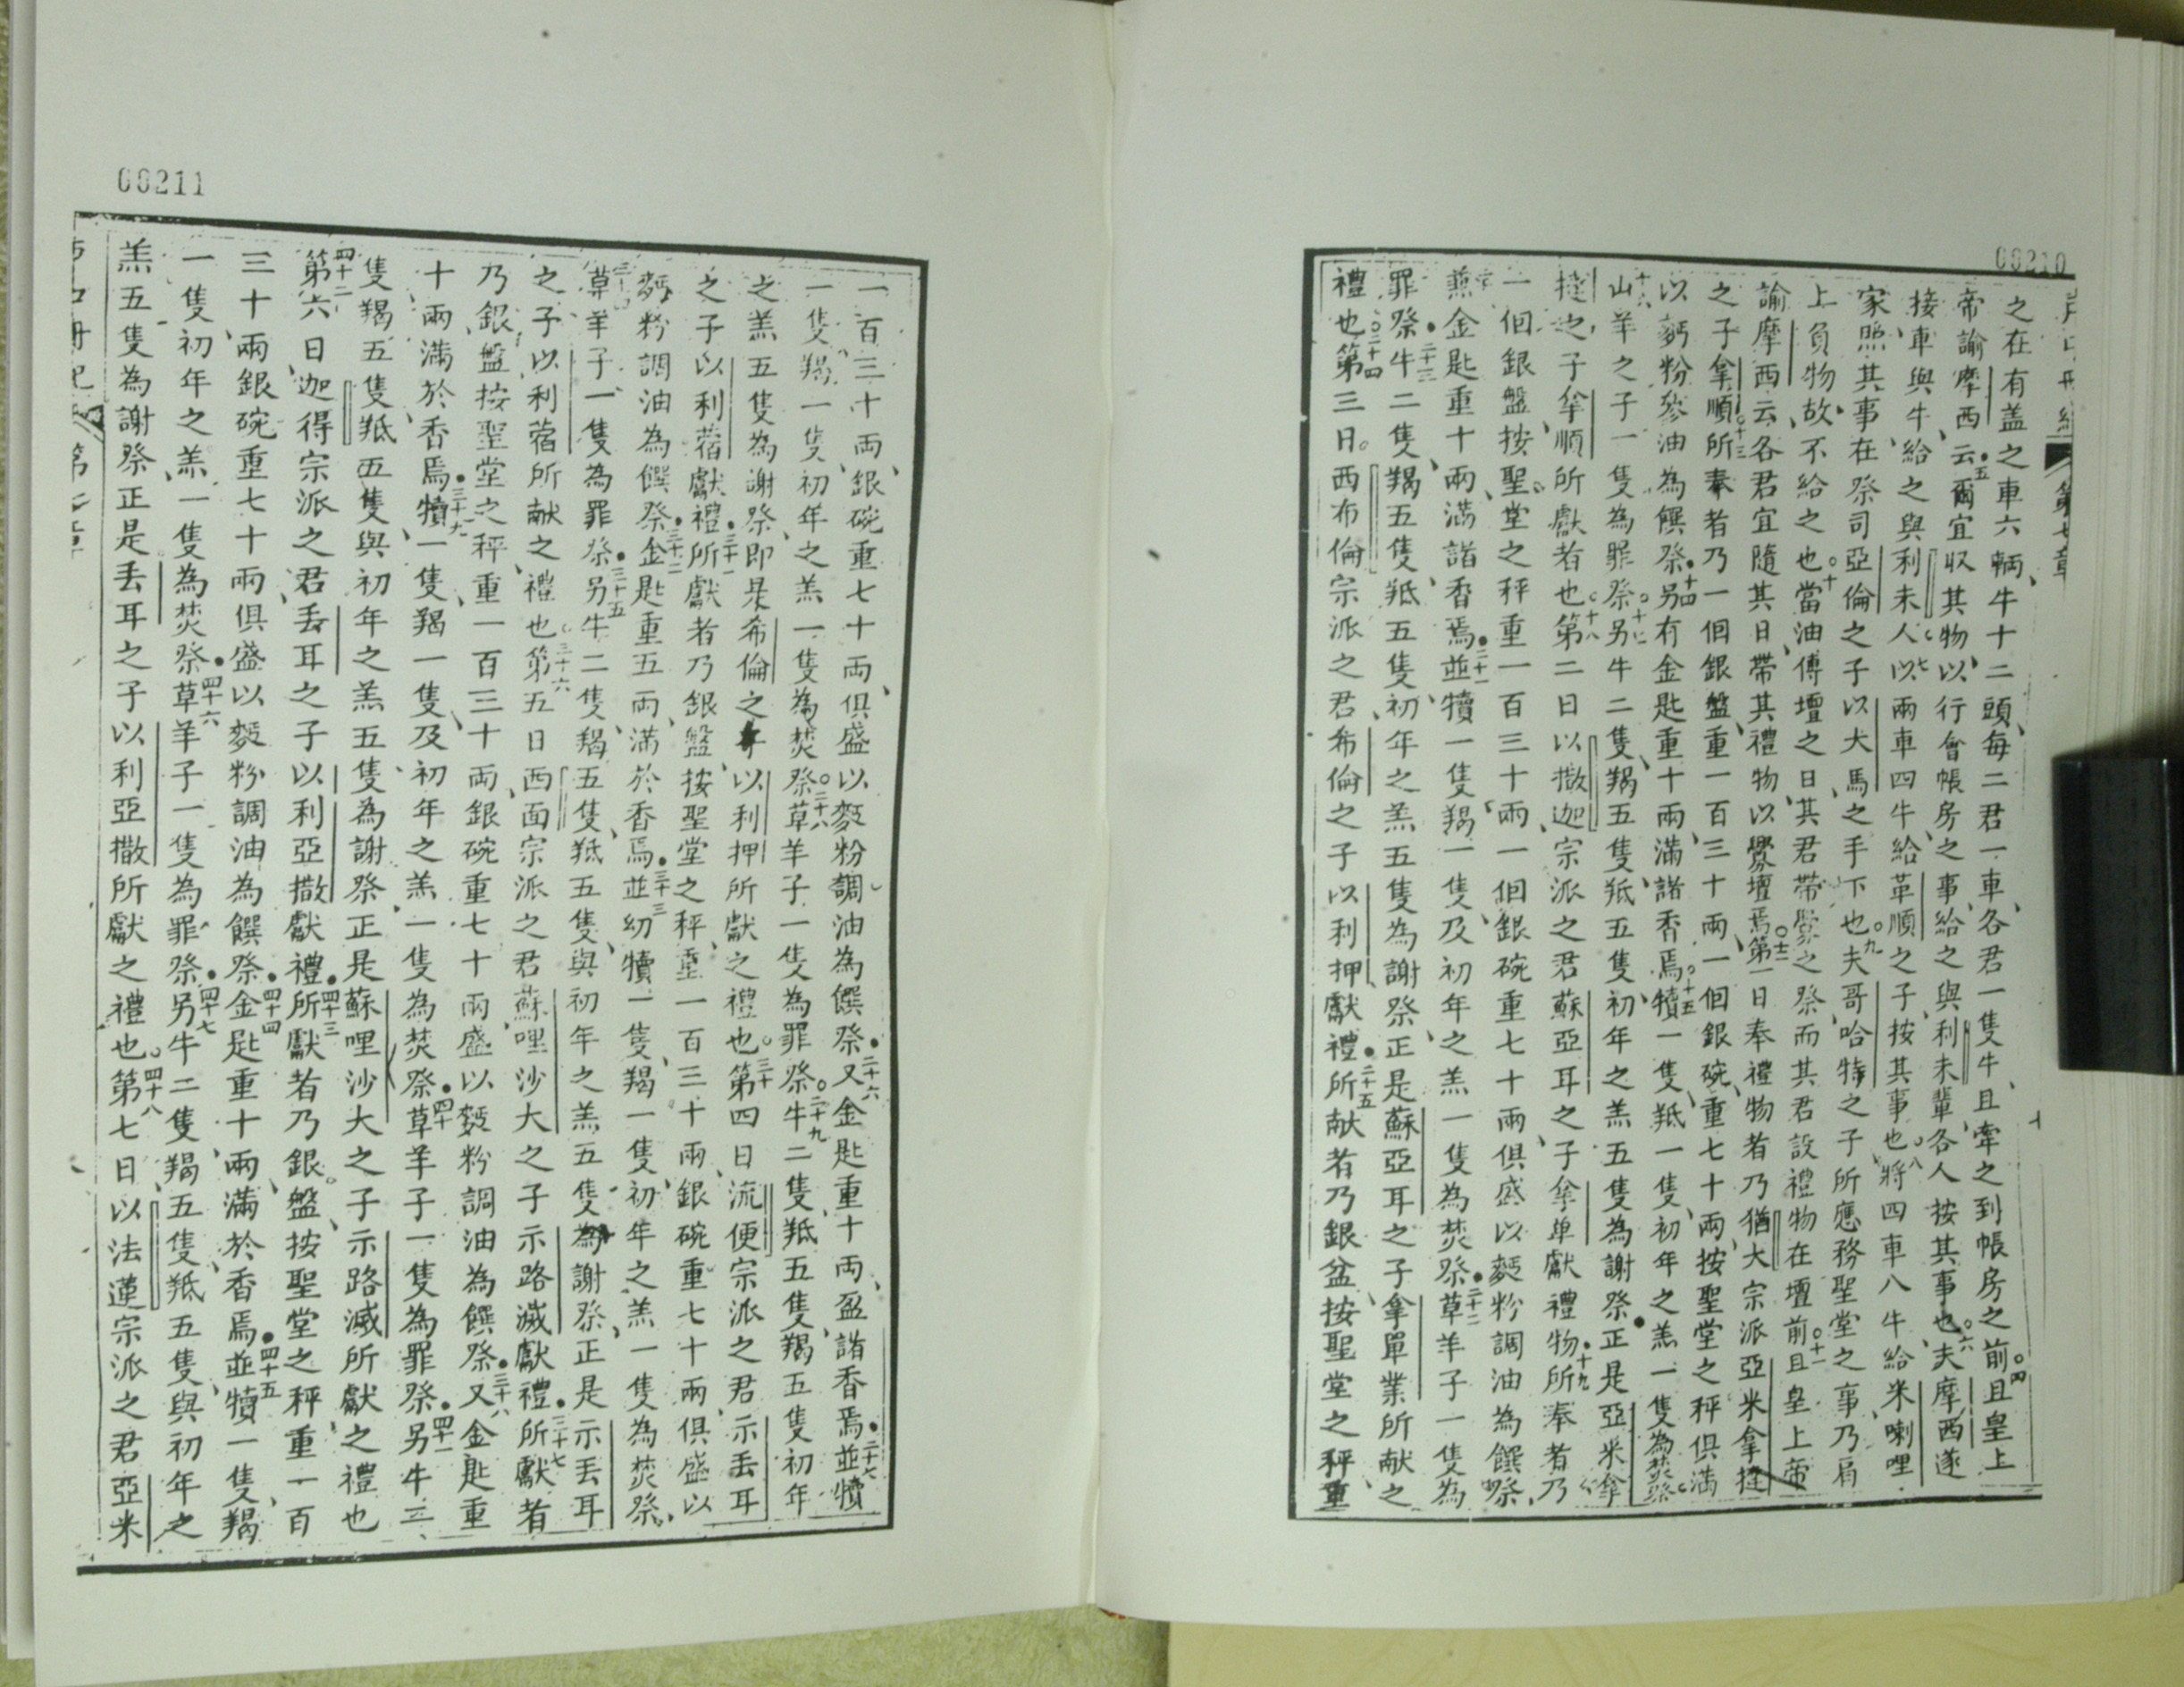 00210
第七章
之在有盖之車六輌牛十二頭每二君一車各君一隻牛且牽之到帳房之前四且皇上
帝諭摩西云五爾宜収其物以行會帳房之事給之與利未輩各人按其事也六夫摩西遂
接車與牛給之與利未人七以兩車四牛給革順之子按其事也八將四車八牛給米喇哩
家照其事在祭司亞倫之子以大馬之手下也九夫哥哈特之子所應務聖堂之事乃肩
上負物故不給之也十當油傅壇之日其君帶之祭而其君設禮物在壇前十一且皇上帝
諭摩西云各君宜隨其日帶其禮物以壇焉十二第一日奉禮物者乃猶大宗派亞米拿撻
之子拿順所奉十三者乃一個銀盤重一百三十兩一個銀碗重七十兩按聖堂之秤俱満
以麪粉參油為饌祭十四另有金匙重十兩滿諸香焉十五犢一隻羝一隻初年之羔一隻為焚祭
十六山羊之子一隻為罪祭十七另牛二隻羯五隻羝五隻初年之羔五隻為謝祭正是亞米拿
撻之子拿順所獻者也十八第二日以撒迦宗派之君蘇亞耳之子拿單獻禮物十九所奉者乃
一個銀盤按聖堂之秤重一百三十兩一個銀碗重七十兩俱盛以麪粉調油為饌祭
金匙重十兩滿諸香焉二十一並犢一隻羯一隻及初年之羔一隻為焚祭二十二草羊子一隻為
罪祭二十三牛二隻羯五隻羝五隻初年之羔五隻為謝祭正是蘇亞耳之子拿單業所献之
禮也二十四第三日西布倫宗派之君希倫之子以利押獻禮二十五所献者乃銀盆按聖堂之秤重
00211
一百三十両銀碗重七十両俱盛以麪粉調油為饌祭二十六又金匙重十両盈諸香焉二十七並犢
一隻羯一隻初年之羔一隻為焚祭二十八草羊子一隻為罪祭二十九牛二隻羝五隻羯五隻初年
之羔五隻為謝祭即是希倫之子以利押所獻之禮也三十第四日流便宗派之君示丟耳
之子以利蓿獻禮三十一所獻者乃銀盤按聖堂之秤重一百三十兩銀碗重七十兩俱盛以
麪粉調油為饌祭三十二金匙重五両滿於香焉三十三並幼犢一隻羯一隻初年之羔一隻為焚祭
三十四草羊子一隻為罪祭三十五另牛二隻羯五隻羝五隻與初年之羔五隻為謝祭正是示丟耳
之子以利蓿所献之禮也三十六第五日西面宗派之君蘇哩沙大之子示路滅獻禮三十七所獻者
乃銀盤按聖堂之秤重一百三十両銀碗重七十兩盛以麪粉調油為饌祭三十八又金匙重
十兩滿於香焉三十九犢一隻羯一隻及初年之羔一隻為焚祭四十草羊子一隻為罪祭四十一另牛二
隻羯五隻羝五隻與初年之羔五隻為謝祭正是蘇哩沙大之子示路滅所獻之禮也
四十二第六日迦得宗派之君丟耳之子以利亞撒獻禮四十三所獻者乃銀盤按聖堂之秤重一百
三十兩銀碗重七十兩俱盛以麪粉調油為饌祭四十四金匙重十兩滿於香焉四十五並犢一隻羯
一隻初年之羔一隻為焚祭四十六草羊子一隻為罪祭四十七另牛二隻羯五隻羝五隻與初年之
羔五隻為謝祭正是丟耳之子以利亞撒所獻之禮也四十八第七日以法蓮宗派之君亞米